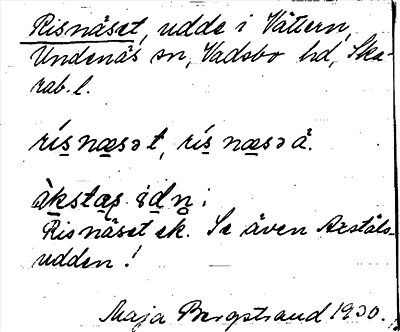 Risnäset, udde i Vättern,
Undenäs sn, Vadsbo hd, Ska-
rab. l.
rísnæsət, rísnæsəå.
àkstas ̥
Risnäset ek. Se även Axståls-
udden!
Maja Bergstrand 1930.